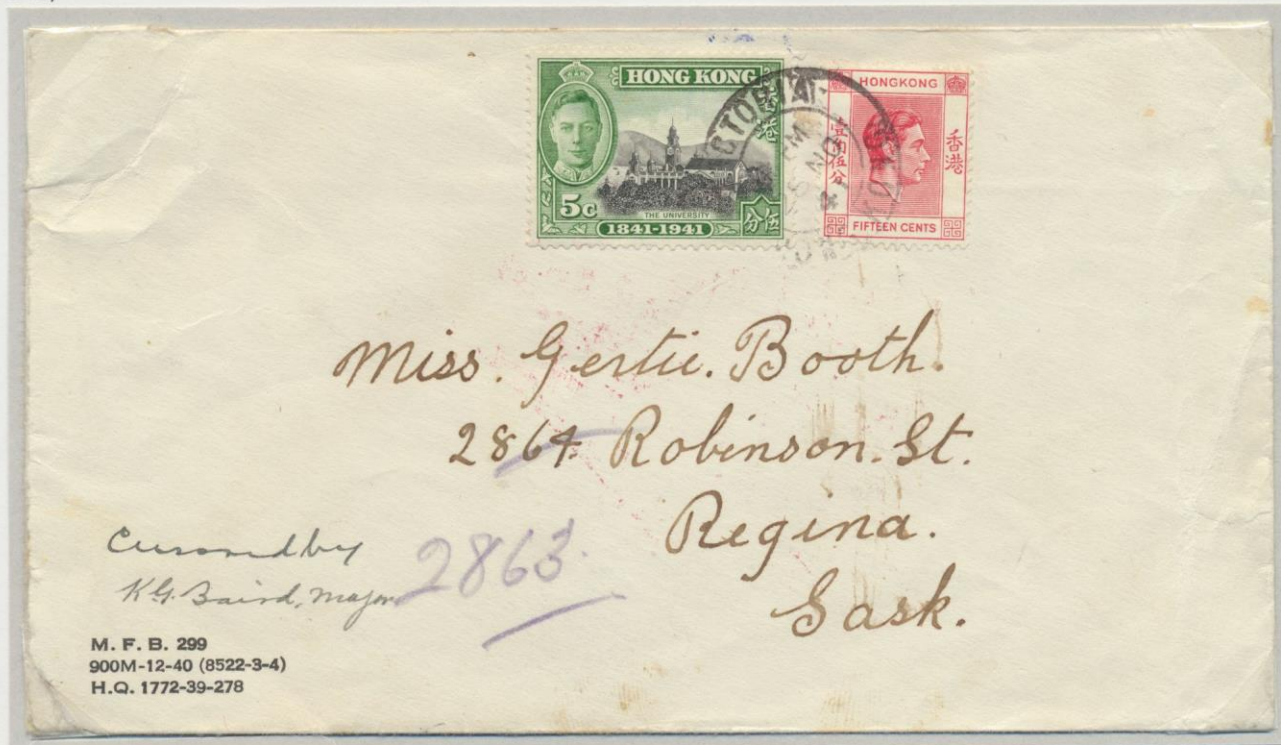 HONG KONG
香港
5c
THE UNIVERSITY
1841-1941
分伍
HONGKONG
香港
壹圓伍分
FIFTEEN CENTS
VICTORIA
25 NO
41
HONG KONG
Miss. Gertie. Booth.
2864 Robinson. St.
Regina.
Sask.
Censored by
K.G. Baird, Major
2863.
M. F. B. 299
900M-12-40 (8522-3-4)
H.Q. 1772-39-278